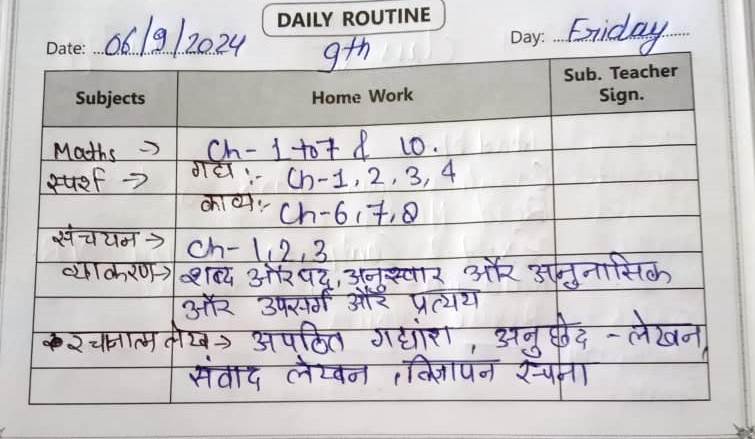 DAILY ROUTINE
Date: 06/9/2024
9th
Day: Friday
Subjects Home Work Sub. Teacher Sign.
Maths → Ch- 1 to 7 & 10.
स्पर्श → गद्य :- Ch-1, 2, 3, 4
काव्य:- Ch-6, 7, 8
संचयन → Ch- 1, 2, 3
व्याकरण → शब्द और पद, अनुस्वार और अनुनासिक
और उपसर्ग और प्रत्यय
रचनात्म लेख → अपठित गद्यांश, अनुछेद - लेखन,
संवाद लेखन, विज्ञापन रचना